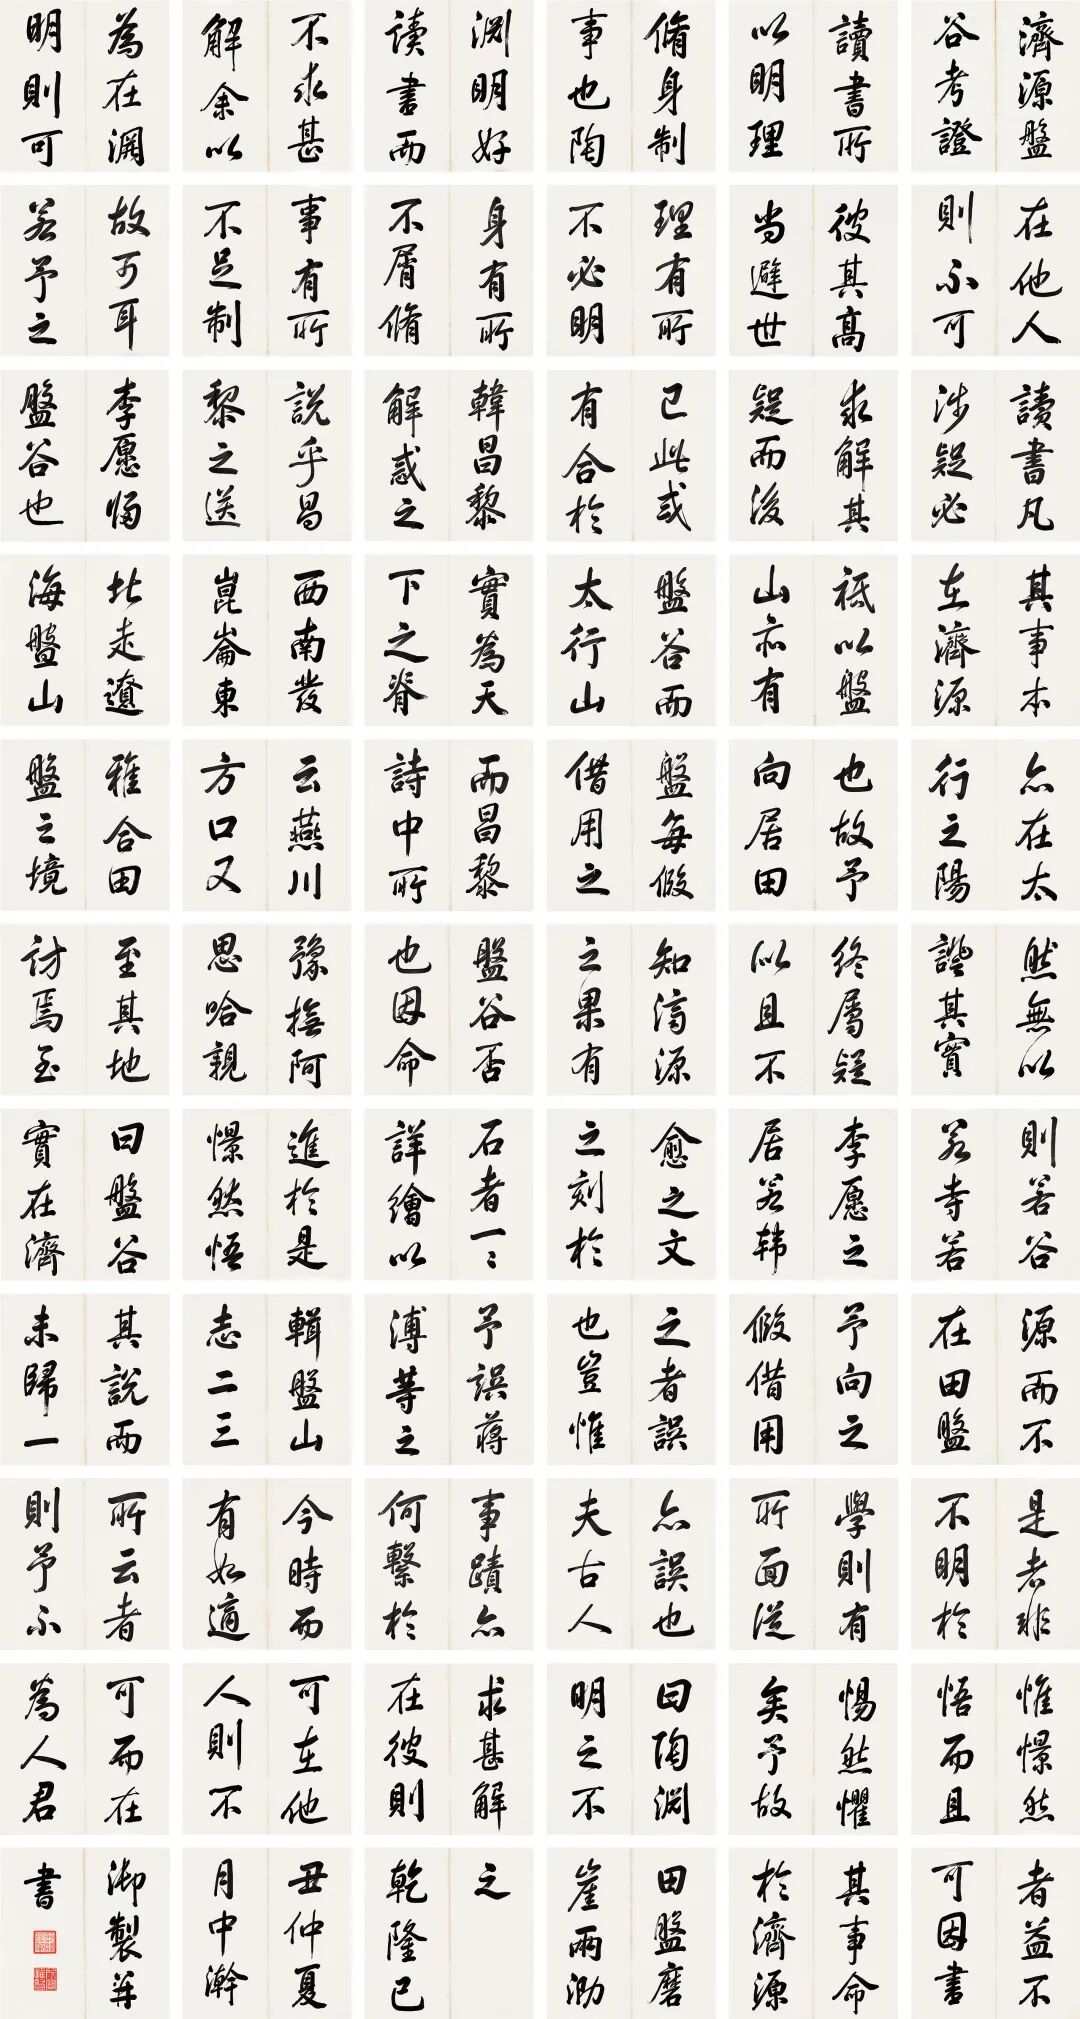 濟源盤
谷考證
讀書所
以明理
脩身制
事也陶
淵明好
读書而
不求甚
解余以
為在淵
明則可
在他人
則不可
彼其高
尚避世
理有所
不必明
身有所
不屑脩
事有所
不足制
故可耳
若予之
讀書凡
涉疑必
求解其
疑而後
已此或
有合於
韓昌黎
解惑之
說乎昌
黎之送
李愿歸
盤谷也
其事本
在濟源
祗以盤
山亦有
盤谷而
太行山
實為天
下之脊
西南發
崑崙東
北走遼
海盤山
亦在太
行之陽
也故予
向居田
盤每假
借用之
而昌黎
詩中所
云燕川
方口又
雅合田
盤之境
然無以
證其實
終屬疑
似且不
知濟源
之果有
盤谷否
也因命
豫撫阿
思哈親
至其地
訪焉至
則若谷
若寺若
李愿之
居若韩
愈之文
之刻於
石者一〻
詳繪以
進於是
憬然悟
曰盤谷
實在濟
源而不
在田盤
予向之
假借用
之者誤
也豈惟
予誤蔣
溥等之
輯盤山
志二三
其說而
未歸一
是者非
不明於
學則有
所面從
亦誤也
夫古人
事蹟亦
何繫於
今時而
有如適
所云者
則予不
惟憬然
悟而且
惕然懼
矣予故
曰陶淵
明之不
求甚解
在彼則
可在他
人則不
可而在
為人君
者益不
可因書
其事命
於濟源
田盤磨
崖兩泐
之
乾隆己
丑仲夏
月中澣
御製并
書